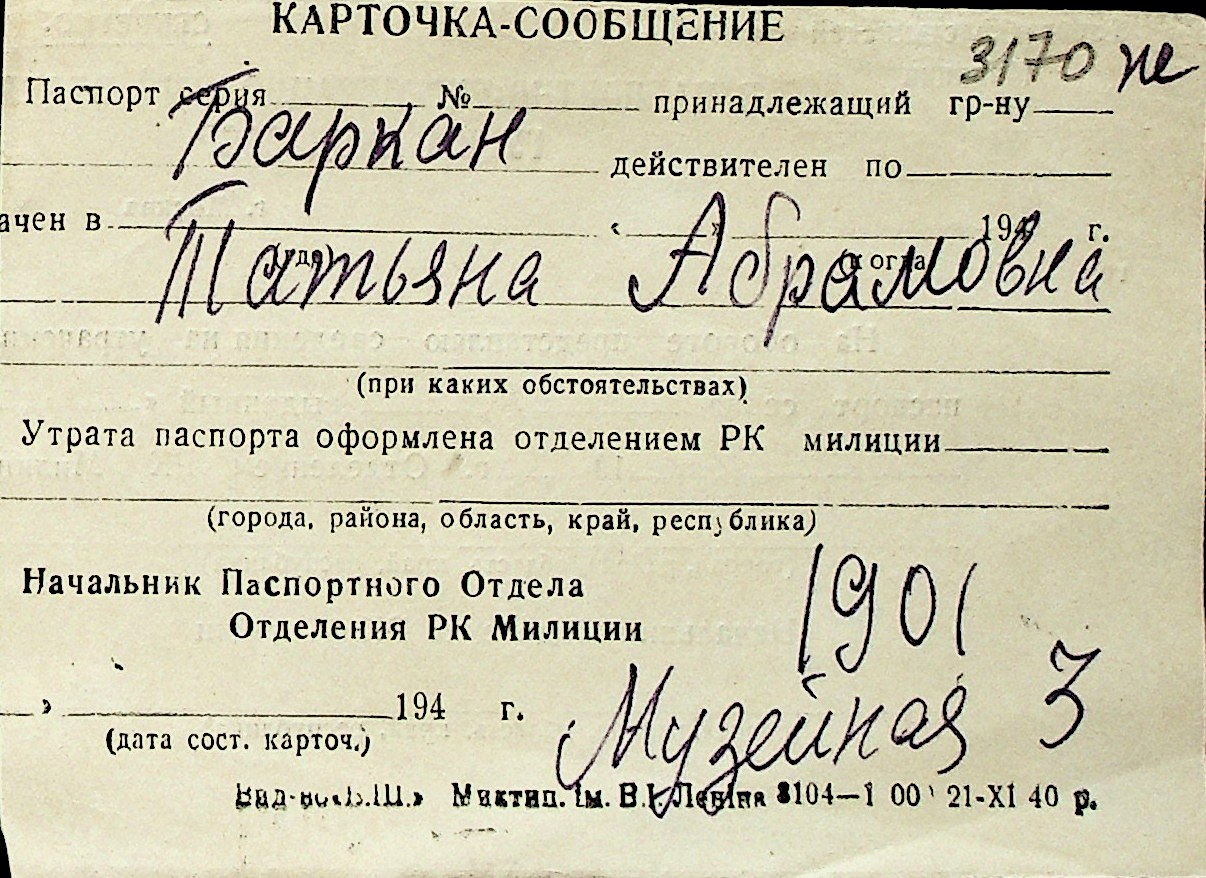 КАРТОЧКА-СООБЩЕНИЕ
3170 же
Паспорт серия № принадлежащий гр-ну
Баркан действителен по
ачен в 194 г.
Татьяна Абрамовна
(при каких обстоятельствах)
Утрата паспорта оформлена отделением РК милиции
(города, района, область, край, республика)
Начальник Паспортного Отдела
Отделения РК Милиции
1901
» 194 г.
Музейная 3
(дата сост. карточ.)
Миктип. ім. В.І. Леніна 8104—1 00 21-XI 40 р.